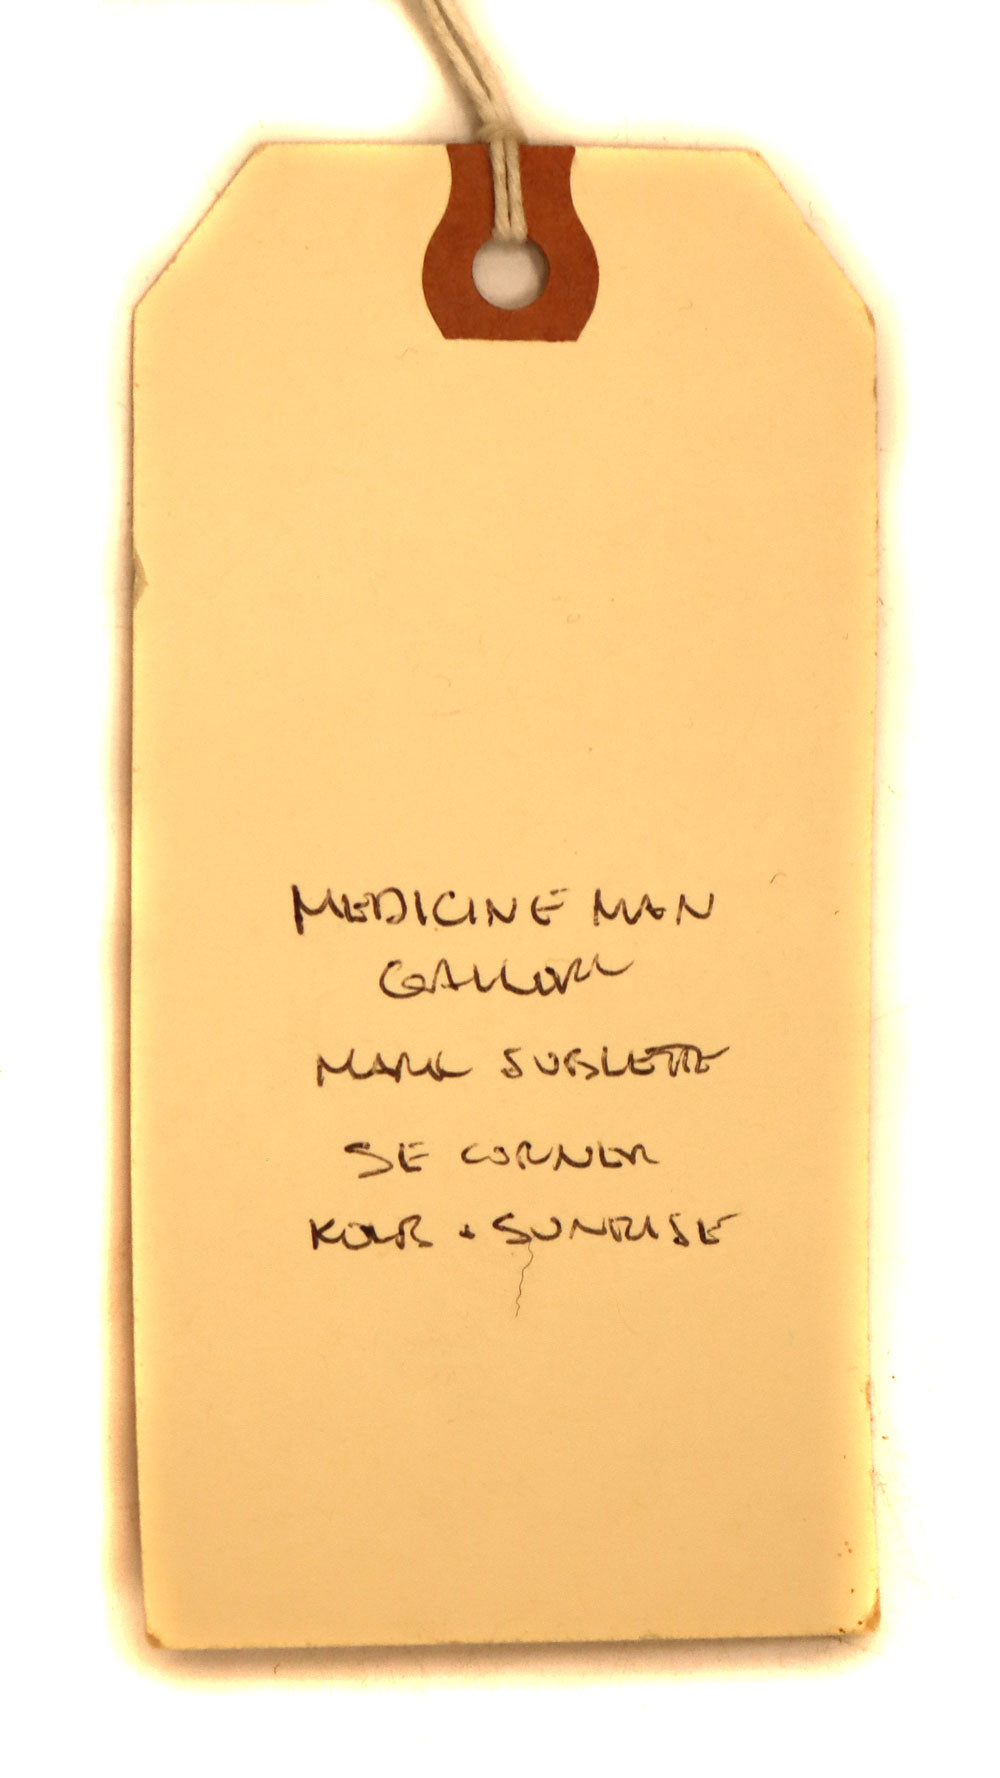 MEDICINE MAN
GALLERY
MARK SUBLETTE
SE CORNER
KOLB + SUNRISE